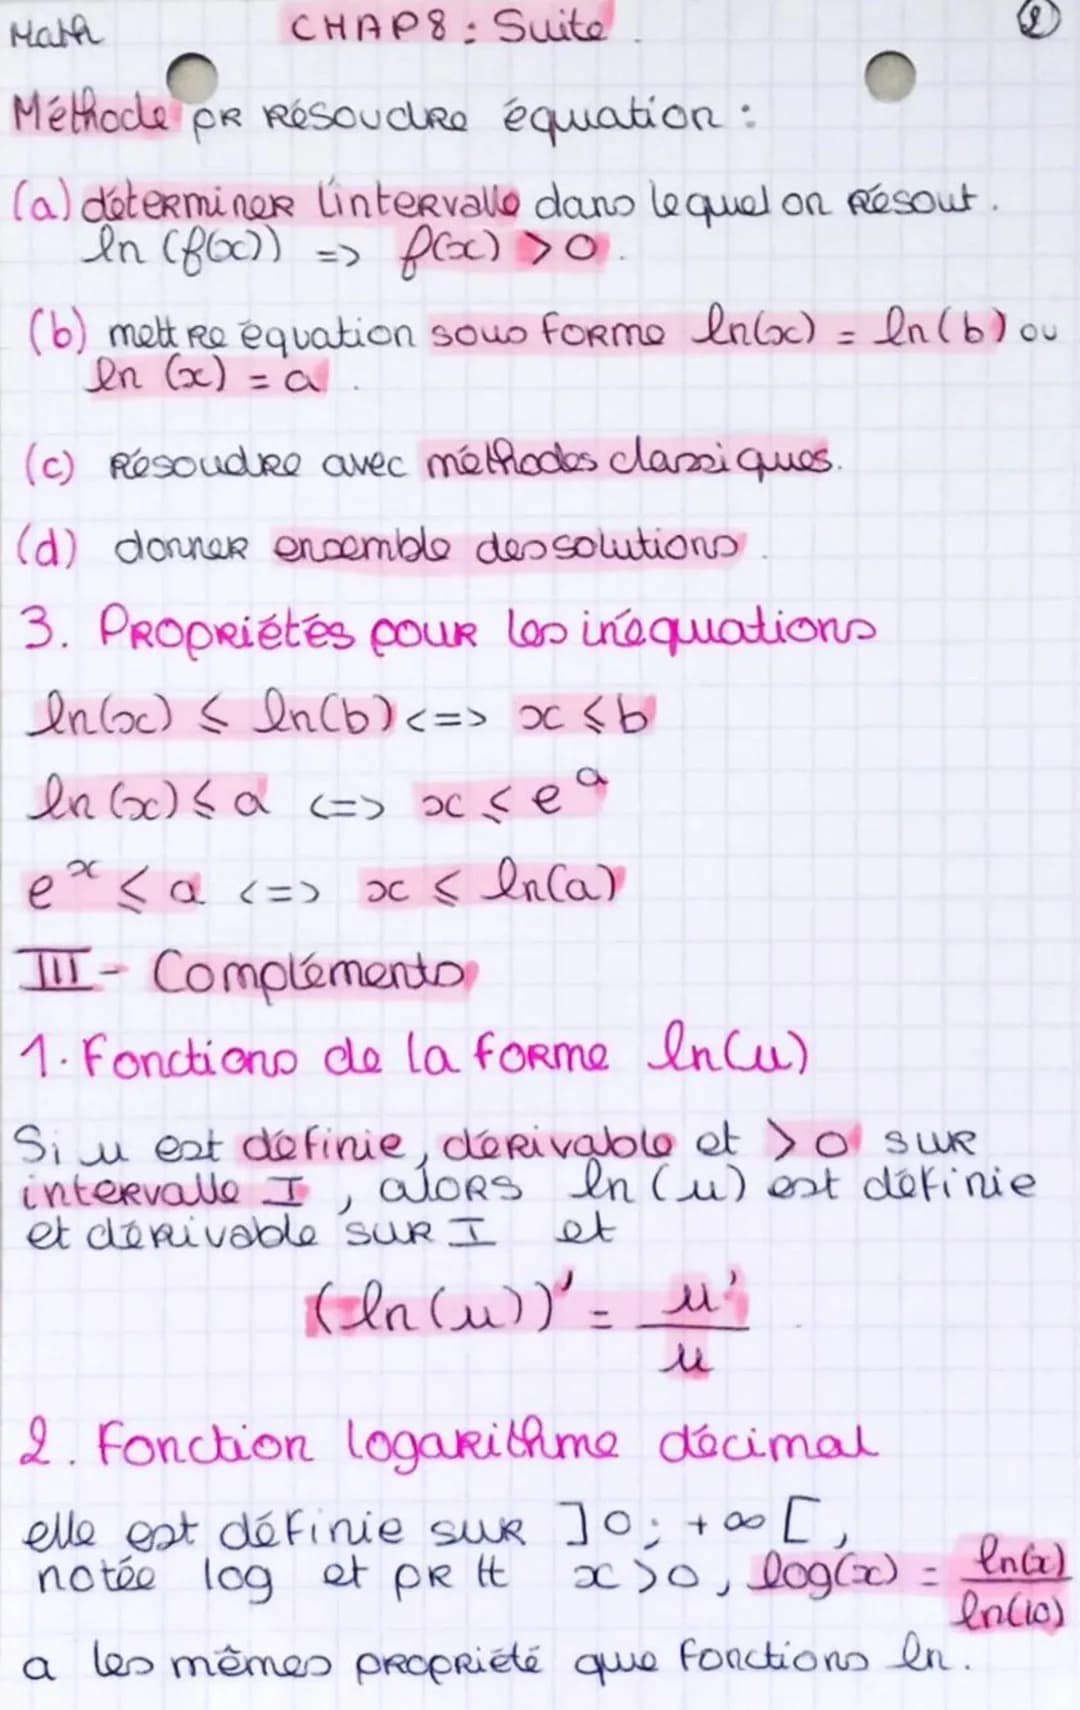 Math CHAP8 : Suite. 2
Méthode pr résoudre équation :
(a) déterminer l'intervalle dans lequel on résout.
ln (f(x)) => f(x) > 0.
(b) mettre équation sous forme ln(x) = ln(b) ou
ln (x) = a.
(c) Résoudre avec méthodes classiques.
(d) donner ensemble des solutions.
3. Propriétés pour les inéquations
ln(x) ⩽ ln(b) <=> x ⩽ b
ln(x) ⩽ a <=> x ⩽ eᵃ
eˣ ⩽ a <=> x ⩽ ln(a)
III - Compléments
1. Fonctions de la forme ln(u)
Si u est définie, dérivable et > 0 sur
intervalle I, alors ln (u) est définie
et dérivable sur I et
(ln(u))' = u'/u
2. Fonction logarithme décimal
elle est définie sur ]0; +∞[,
notée log et pr tt x>0, log(x) = ln(x)/ln(10)
a les mêmes propriété que fonctions ln.